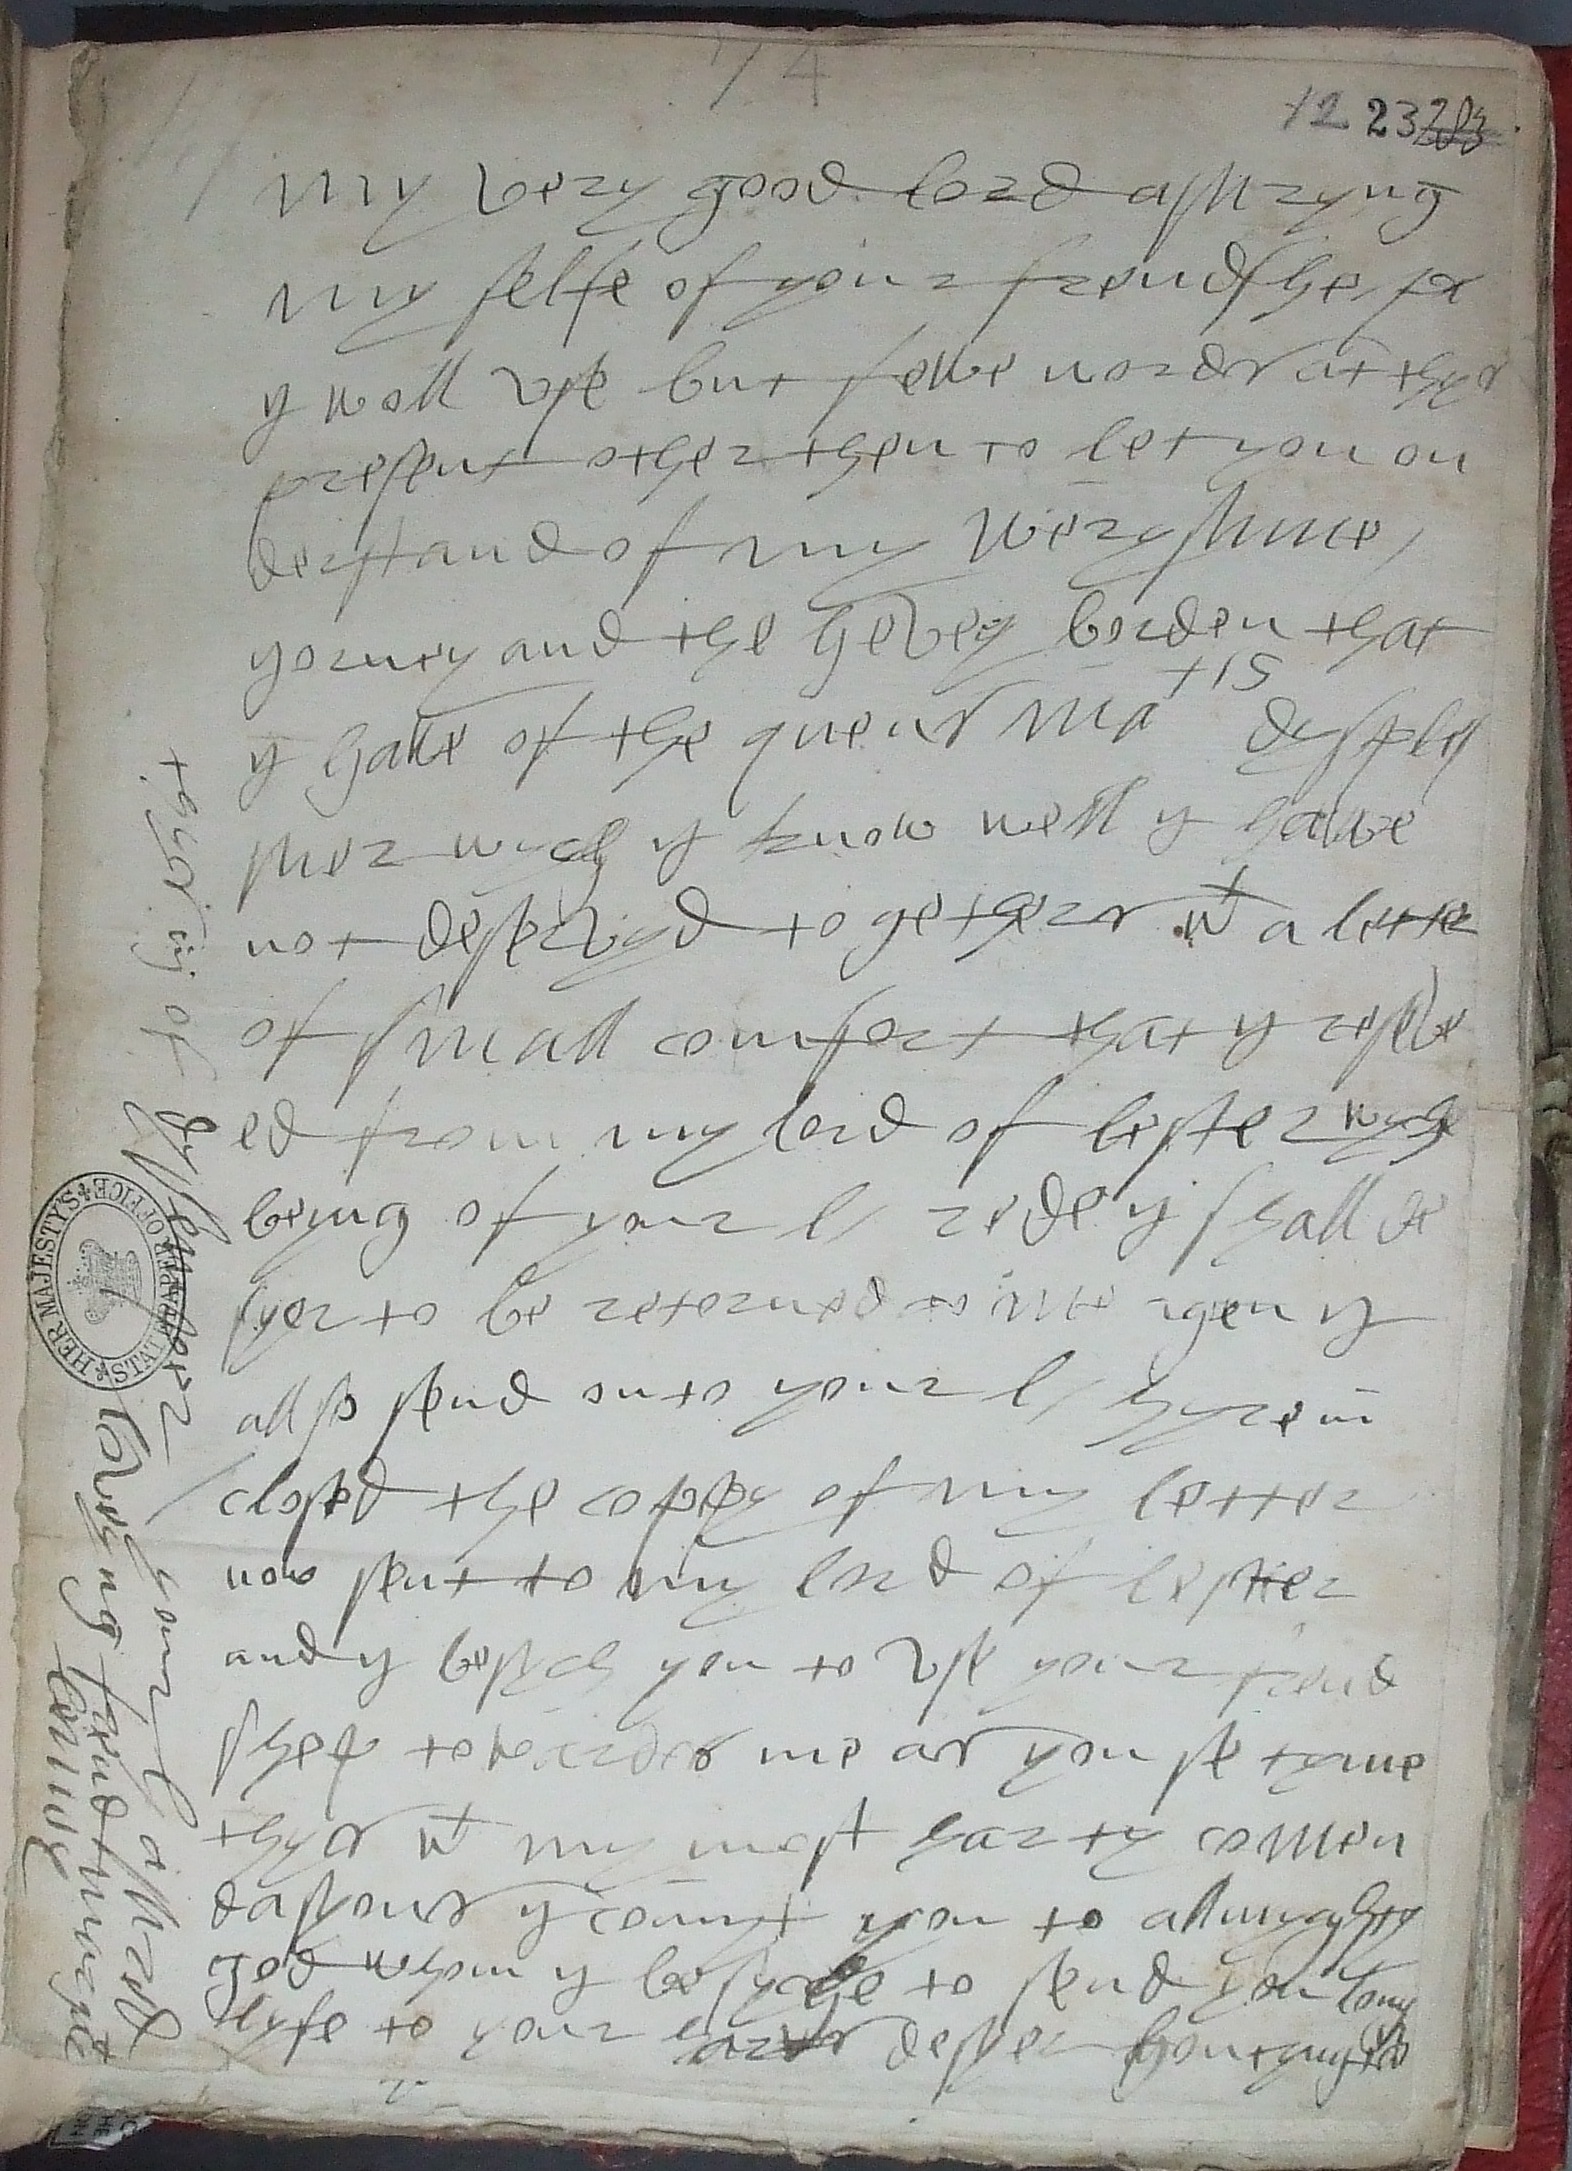 74
12 23 283
my very good lord assuryng
my selfe of your frendshep
y woll use but fewe words at thys
present other then to let you on
derstand of my werysume
yorney and the hevey borden that
y have of the quens ma tis dysple
suer wych y know well y have
not deservyd together wt a letter
of small comfort that y reseve
ed from my lord of lester wych
beyng of your l/ rede y shall de
syer to be retorned to me agen y
allso send onto your l/ hyre in
closed the coppy of my letter
now sent to my lord of lester
and y besych you to use your frend
shep towardes me as you se tyme
thys wt my most harty comen
dasyons y comyt you to allmyghty
god whom y besyche to send you long
lyfe to your harts desyer hontyngto
thys iij of
desember
your l assured
lovyng frend
HER MAJESTY'S STATE PAPER OFFICE